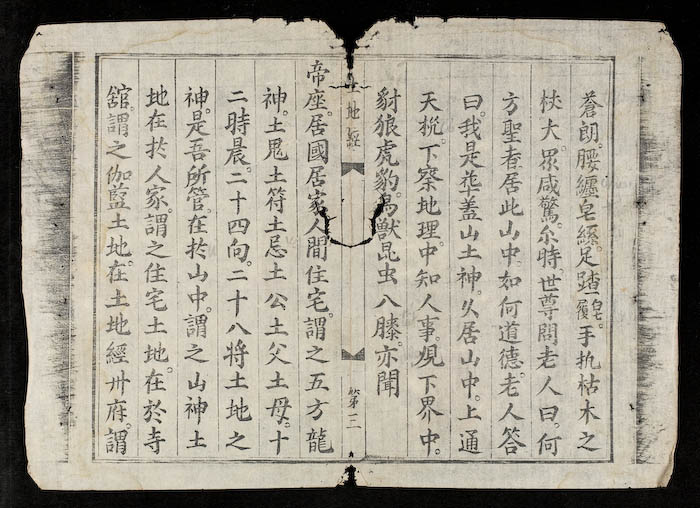 蒼朗。腰纏皂縧。足踏皂履。手执枯木之
杖。大眾咸驚。尒時世尊問老人曰。何
方聖者居此山中。如何道德。老人答
曰。我是華盖山土神。久居山中。上通
天梲。下察地理。中知人事。覌下界中。
豺狼虎豹。鳥獸昆虫八滕。亦聞
地經
第二
帝座。居國居家。人間住宅。謂之五方龍
神。土鬼土符土忌土公土父土母。十
二時晨。二十四向。二十八将土地之
神。是吾所管。在扵山中。謂之山神土
地在扵人家。謂之住宅土地。在扵寺
舘。謂之伽藍土地。在土地經州府。謂